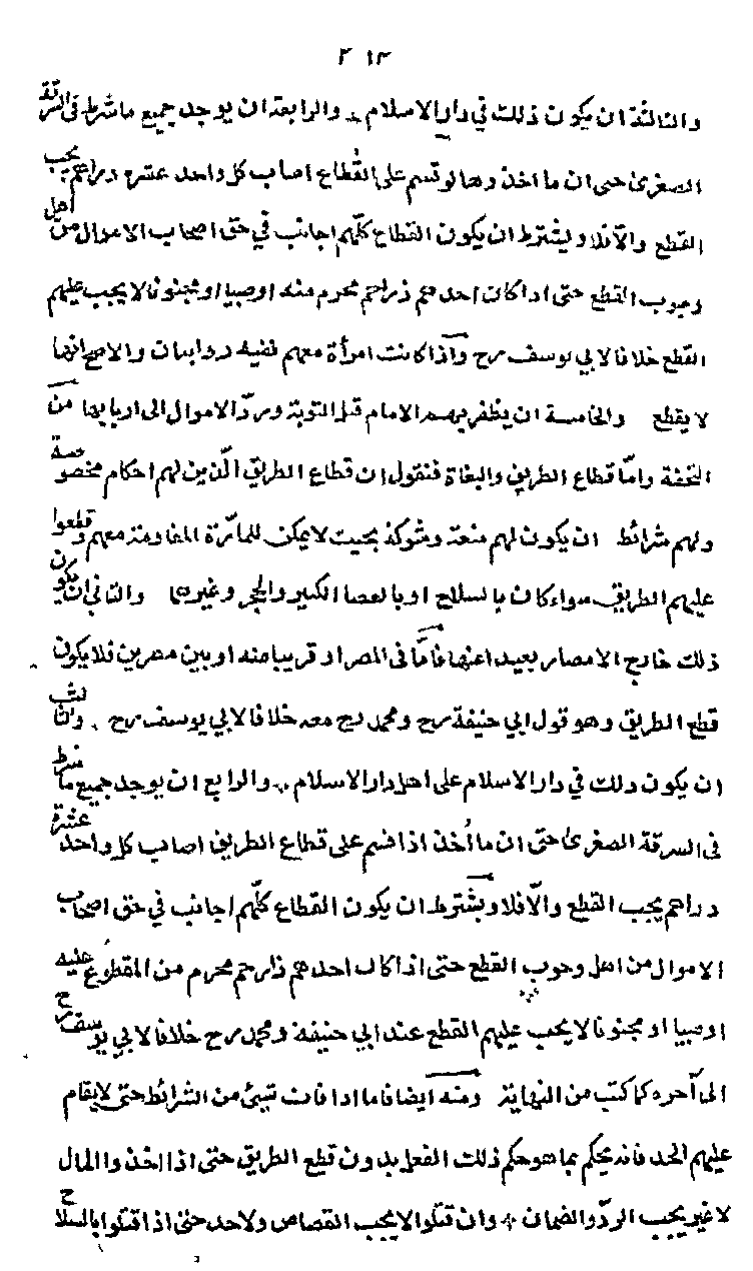 ٢١٣
والثالثة ان يكون ذلك في دار الاسلام والرابعة ان يوجد جميع ما شرط في السرقة
الصغرى حتى ان ما اخذوها لو قسم على القطاع اصاب كل واحد عشرة دراهم يجب
القطع والا فلا ويشترط ان يكون القطاع كلهم اجانب في حق اصحاب الاموال من اهل
وجوب القطع حتى اذا كان احدهم ذا رحم محرم منه او صبيا او مجنونا لا يجب عليهم
القطع خلافا لابي يوسف رح واذا كانت امرأة معهم ففيه روايتان والاصح انها
لا يقطع والخامسة ان يظفر بهم الامام قبل التوبة ورد الاموال الى اربابها من
التحفة واما قطاع الطريق والبغاة فنقول ان قطاع الطريق الّذين لهم احكام مخصوصة
ولهم شرائط ان يكون لهم منعة وشوكة بحيث لا يمكن للمارّة المقاومة معهم وقطعوا
عليهم الطريق سواء كان بالسلاح او بالعصا الكبير والحجر وغيرهما والثاني ان يكون
ذلك خارج الامصار بعيدا عنها فامّا في المصر او قريبا منه او بين مصرين فلا يكون
قطع الطريق وهو قول ابي حنيفة رح ومحمد رح معه خلافا لابي يوسف رح والثالث
ان يكون ذلك في دار الاسلام على اهل دار الاسلام والرابع ان يوجد جميع ما شرط
في السرقة الصغرى حتى ان ما أخذ اذا قسم على قطاع الطريق اصاب كل واحد عشرة
دراهم يجب القطع والّا فلا ويشترط ان يكون القطاع كلّهم اجانب في حق اصحاب
الاموال من اهل وجوب القطع حتى اذا كان احدهم ذا رحم محرم من المقطوع عليه
او صبيا او مجنونا لا يجب عليهم القطع عند ابي حنيفة ومحمد رح خلافا لابي يوسف رح
الى آخره كما كتب من النهاية ومنه ايضا فاما اذا فات شيئ من الشرائط حتى لا يقام
عليهم الحد فانه يحكم بما هو حكم ذلك الفعل بدون قطع الطريق حتى اذا اخذوا المال
لا غير يجب الردّ والضمان وان قتلوا لا يجب القصاص ولا حد حتى اذا قتلوا بالسلاح